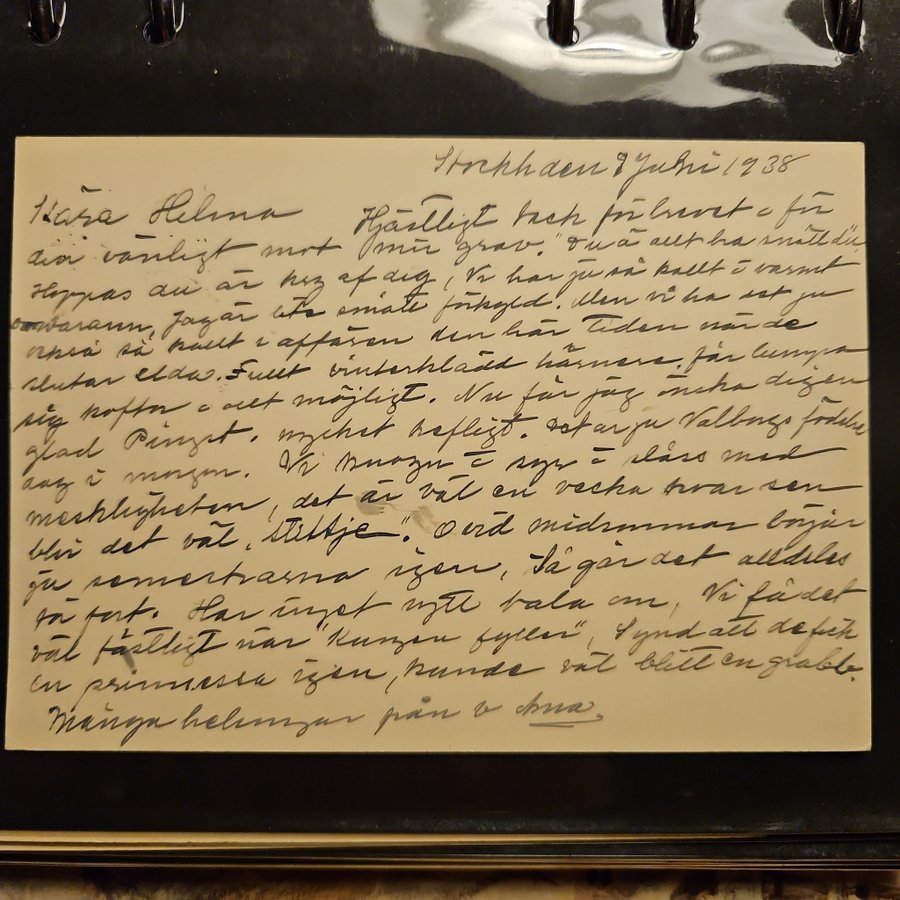 Stockh den 3 Juni 1938
Kära Helma Hjärtligt tack för brevet o för
din vänligt mot min grav. Du är allt bra snäll du
Hoppas du är kry af dig, Vi har ju så kallt o varmt
vararnn, Jag är lite smått förkyld. Men vi ha det ju
också så kallt i affären den här tiden när de
slutar elda. Fullt vinterklädd härnere, får lumpa
sig koftor o allt möjligt. Nu får jag önska dig en
glad Pingst. mycket trefligt. Det är ju Valborgs födelse
dag i morgon. Vi knogar o syr o slåss med
meskligheten, det är väl en vecka kvar sen
blir det väl, "stiltje". O vid midsommar börjar
ju semestrarna igen, Så går det alldeles
för fort. Har inget nytt tala om, Vi få det
väl fästligt när "Kungen fyller", Synd att de fick
en prinsessa igen, kunde väl blitt en grabb.
Många helsningar från v Anna.